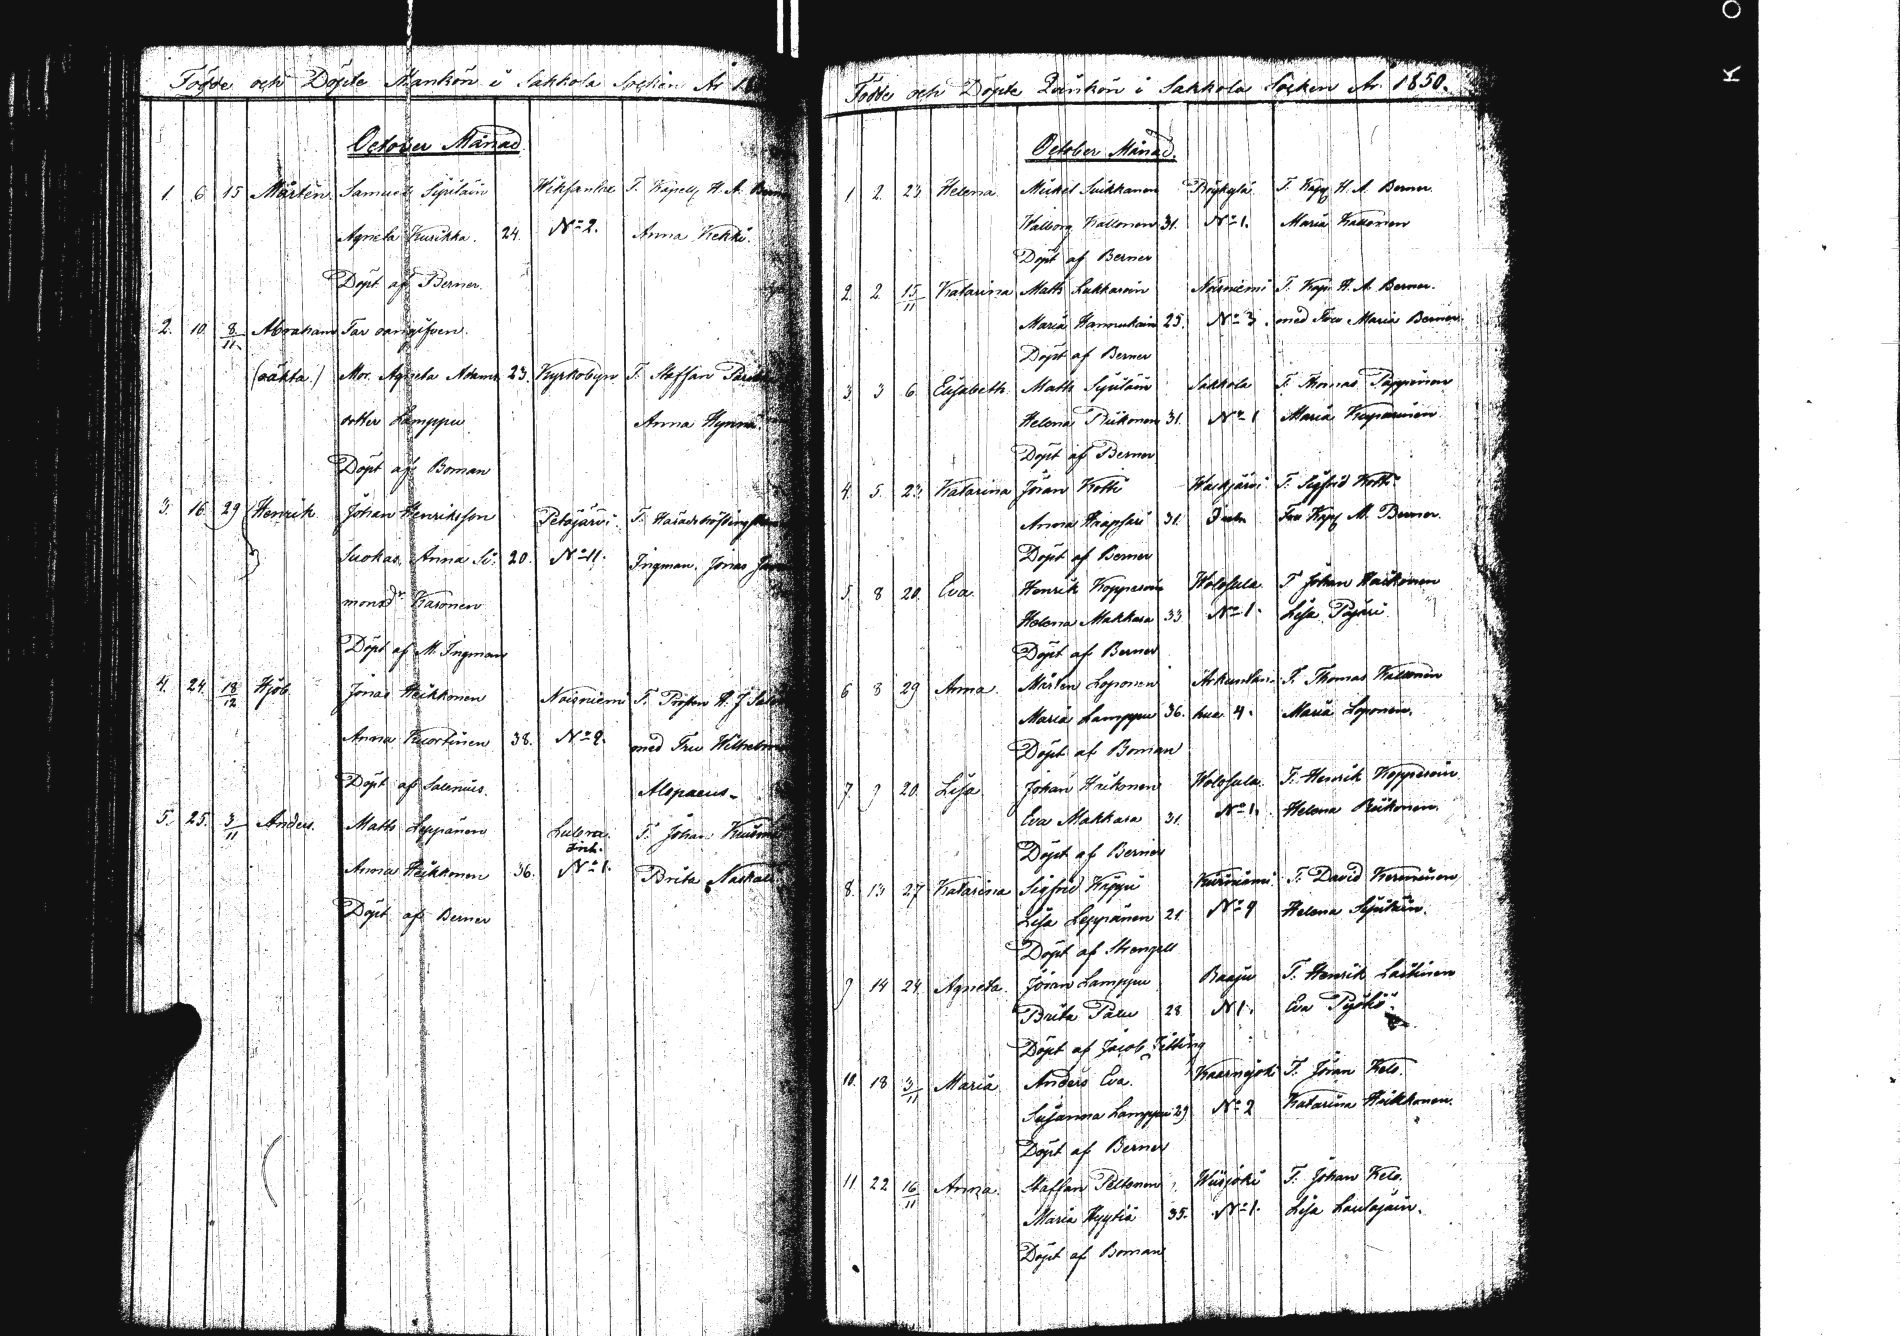 Födde och Döpte Mankön i Sakkola Socken År 18
October Månad
1. 6 15 Mårten. Samuel Sipiläin Wiksanlax T. Kapell. H. A. Berner
Agneta Kurikka. 24. No 2. Anna Kekki.
Döpt af Berner.
2. 10. 8/11. Abraham Far oangifven.
(oäkta.) Mor. Agneta Adams 23. Kyrkobyn T. Staffan
dotter Lamppu Anna Hynnä.
Döpt af Boman
3. 16 29 Henrik Johan Henriksson Petäjärvi T. Häradshöfding
Suokas, Anna Si- 20. No 11. Ingman. Jonas
monsdr Karonen
Döpt af M. Ingman
4. 24. 18/12 Hjob. Jonas Heikkonen Noisniemi T. Prosten H. J.
Anna Kuortinen 38. No 2. med Fru Wilhelmina
Döpt af Salenius. Alopaeus.
5. 25. 3/11 Anders. Matts Leppänen T. Johan
Anna Heikkonen 36. No 1. Brita
Döpt af Berner
Födde och Döpte Qvinkön i Sakkola Socken År. 1850.
October Månad.
1 2. 23 Helena. Mickel Suikkanen Röykylä. T. Kap. H. A. Berner.
Walborg Kallonen 31. No 1. Maria Kallonen
Döpt af Berner
2. 2. 15/11 Katarina Matts Lukkaroin Noisniemi T. Kap. H. A. Berner.
Maria Hannukain 25. No 3. med Fru Maria Berner.
Döpt af Berner
3. 3 6 Elisabeth. Matts Sipiläin Sakkola T. Thomas Pappinen
Helena Riikonen 31. No 1 Maria Kuparinen
Döpt af Berner
4. 5. 23. Katarina Jöran Kotti T. Sigfrid Kotti
Anna Haapsari 31. Fru Kap. M. Berner.
Döpt af Berner
5. 8 20. Eva. Henrik Kopperoin Wolosula. T Johan Häikonen
Helena Makkara 33 No 1. Lisa Pajari
Döpt af Berner
6 8 29 Anna. Mårten Loponen T. Thomas Kallonen
Maria Lamppu 36. 4. Maria Loponen.
Döpt af Boman
7. 9 20. Lisa. Johan Häikonen Wolosula. T. Henrik Kopperoin
Eva Makkara 31. No 1. Helena Riikonen.
Döpt af Berner
8. 13 27 Katarina Sigfrid Käppi T. David Karvinen
Lisa Leppänen 21. No 9 Helena Sipiläin.
Döpt af Strengell
9 14 24. Agneta. Jöran Lamppu Raaju T. Henrik Laitinen
Brita Palu 28 N 1. Eva Pyökö.
Döpt af Jacob
10. 18 3/11 Maria. Anders Eva. Kaarnajoki T. Jöran Kelo.
Susanna Lamppu 29 No 2 Katarina Heikkonen.
Döpt af Berner
11 22 16/11 Anna. Staffan Peltonen Wiisjoki T. Johan Kelo.
Maria Hyytiä 35. No 1. Lisa Laulajain.
Döpt af Boman
K O